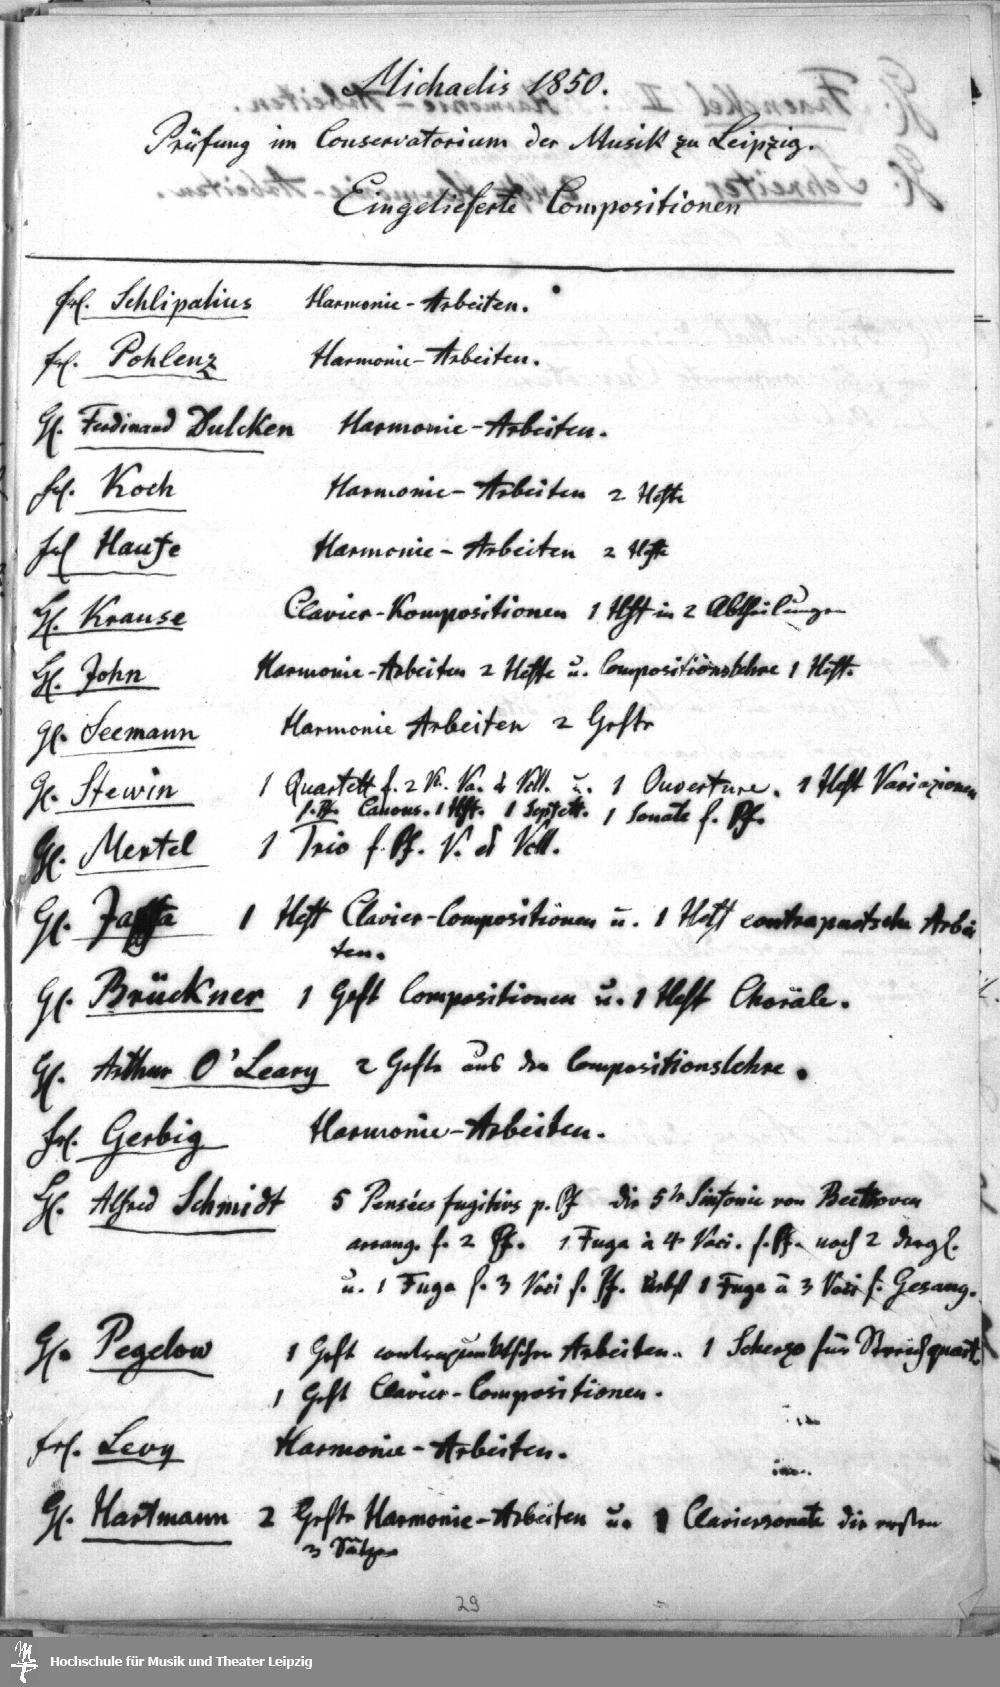 Michaelis 1850.
Prüfung im Conservatorium der Musik zu Leipzig.
Eingelieferte Compositionen
Frl. Schlipalius Harmonie-Arbeiten.
Frl. Pohlenz Harmonie-Arbeiten.
H. Ferdinand Dulcken Harmonie-Arbeiten.
Frl. Koch Harmonie-Arbeiten 2 Hefte
Frl Haufe Harmonie-Arbeiten 2 Hefte
H. Krause Clavier-Kompositionen 1 Heft in 2 Abtheilungen
H. John Harmonie-Arbeiten 2 Hefte u. Compositionslehre 1 Heft.
H. Seemann Harmonie Arbeiten 2 Hefte
H. Stewin 1 Quartett f. 2 Vl. Va. & Vcll. u. 1 Ouverture. 1 Heft Variazionen
f. Pf. Canons. 1 Hft. 1 Septett. 1 Sonate f. Pf.
H. Mertel 1 Trio f. Pf. V. & Vcll.
H. Jaffa 1 Heft Clavier-Compositionen u. 1 Heft contrapuctsche Arbei
ten.
H. Brückner 1 Heft Compositionen u. 1 Heft Choräle.
H. Arthur O'Leary 2 Hefte aus der Compositionslehre.
Frl. Gerbig Harmonie-Arbeiten.
H. Alfred Schmidt 5 Pensées fugitivs p. Pf die 5te Sinfonie von Beethoven
arrang. f. 2 Pf. 1 Fuga à 4 Voci. f. Pf. noch 2 dergl.
u. 1 Fuga f. 3 Voci f. Pf. nebst 1 Fuga à 3 Voci f. Gesang.
H. Pegelow 1 Heft contrapunktschen Arbeiten. 1 Scherzo für Streichquart.
1 Heft Clavier-Compositionen.
Frl. Levy Harmonie-Arbeiten.
H. Hartmann 2 Hefte Harmonie-Arbeiten u. 1 Claviersonate die ersten
3 Sätze
29
Hochschule für Musik und Theater Leipzig